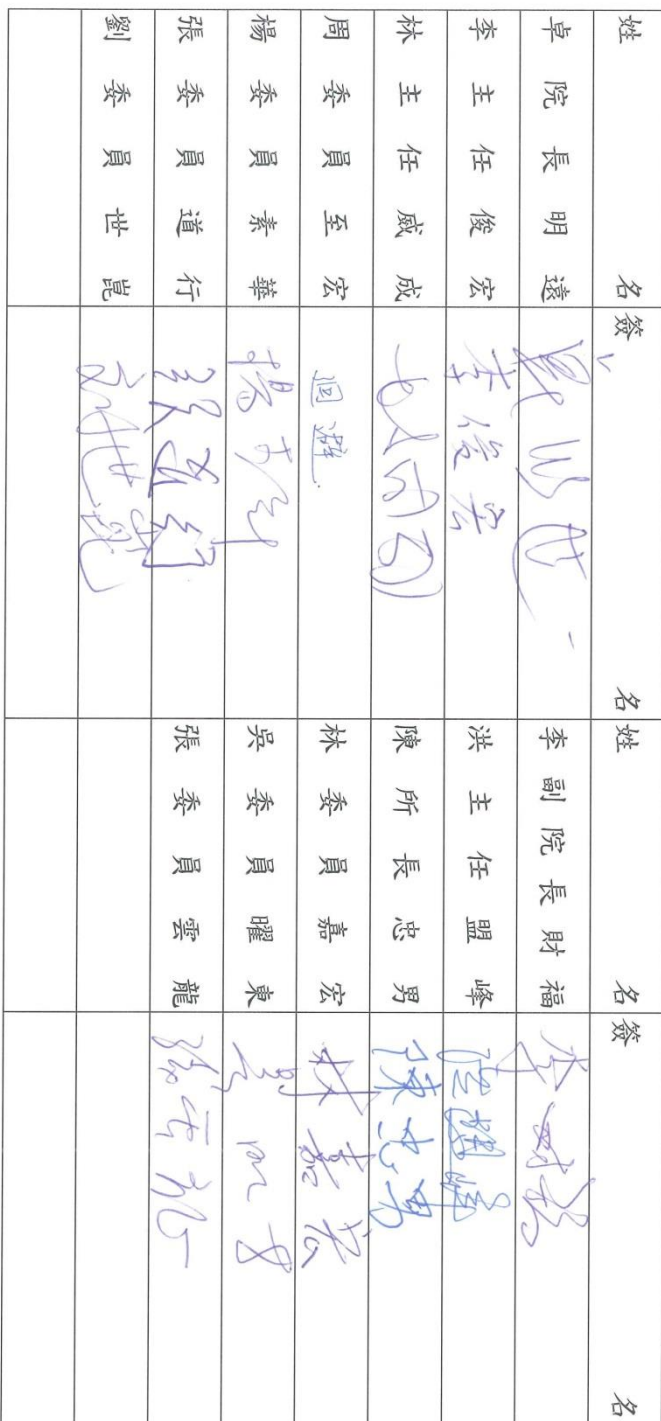 姓名 簽名 姓名 簽名
卓院長明遠 李副院長財福 李財福
李主任俊宏 李俊宏 洪主任盟峰 洪盟峰
林主任威成 陳所長忠男 陳忠男
周委員至宏 迴避 林委員嘉宏 林嘉宏
楊委員素華 吳委員曜東
張委員道行 張委員雲龍
劉委員世崑 劉世崑